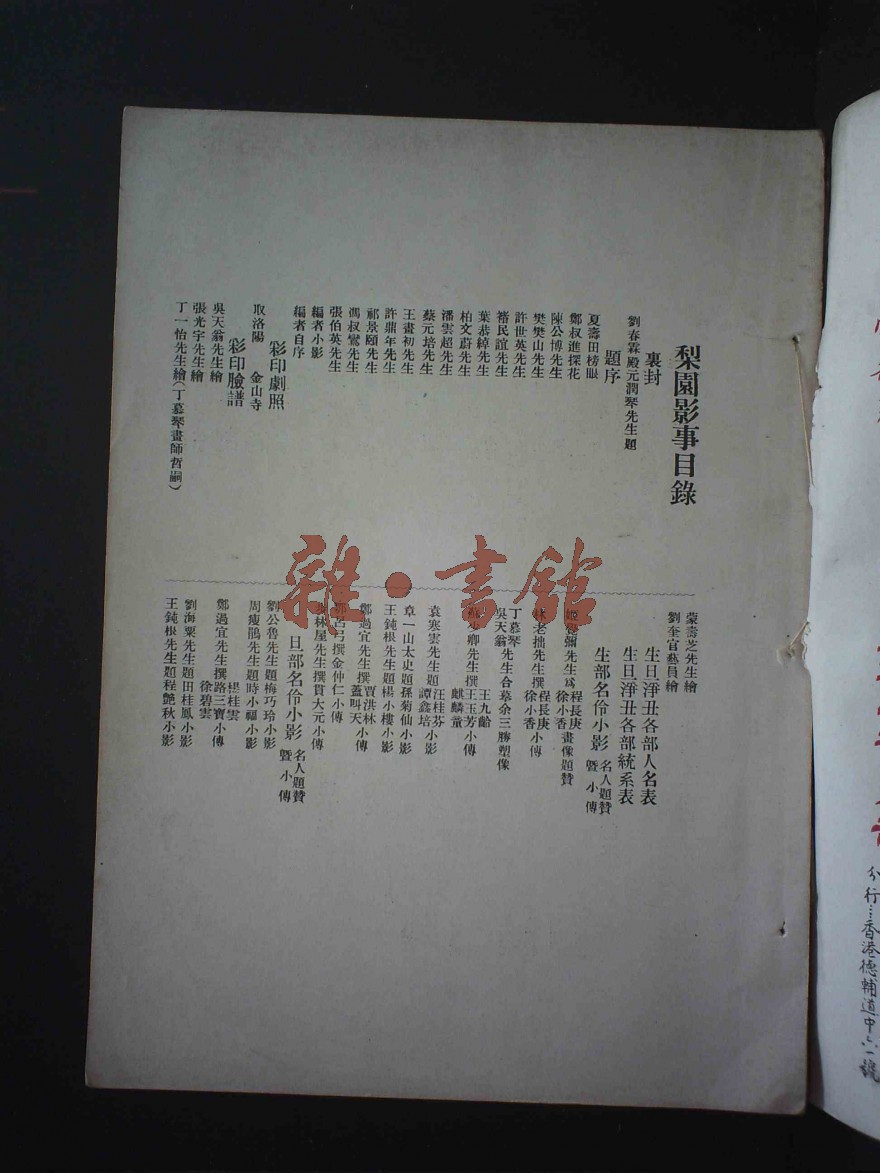 梨園影事目錄
裏封
劉春霖殿元潤琴先生題
題序
夏壽田榜眼
鄭叔進探花
陳公博先生
樊樊山先生
許世英先生
褚民誼先生
葉恭綽先生
柏文蔚先生
潘雲超先生
蔡元培先生
王晝初先生
許鼎年先生
祁景頤先生
馮叔鸞先生
張伯英先生
編者小影
編者自序
彩印劇照
取洛陽 金山寺
彩印臉譜
吳天翁先生繪
張光宇先生繪
丁一怡先生繪(丁慕琴畫師哲嗣)
蒙壽芝先生繪
劉奎官藝員繪
生旦淨丑各部人名表
生旦淨丑各部統系表
生部名伶小影 名人題贊 暨小傳
姬覺彌先生爲 程長庚 徐小香 畫像題贊
林老拙先生撰 程長庚 徐小香 小傳
丁慕琴 吳天翁 先生合摹余三勝塑像
卿先生撰 王九齡 王玉芳 麒麟童 小傳
袁寒雲先生題 汪桂芬 譚鑫培 小影
章一山太史題孫菊仙小影
王鈍根先生題楊小樓小影
鄭過宜先生撰 賈洪林 蓋叫天 小傳
呂弓撰金仲仁小傳
林屋先生撰貫大元小傳
旦部名伶小影 名人題贊 暨小傳
劉公魯先生題梅巧玲小影
周瘦鵑先生題時小福小影
鄭過宜先生撰 楊桂雲 路三寶 徐碧雲 小傳
劉海粟先生題田桂鳳小影
王鈍根先生題程艷秋小影
雜·書館
分行：香港德輔道中六一號